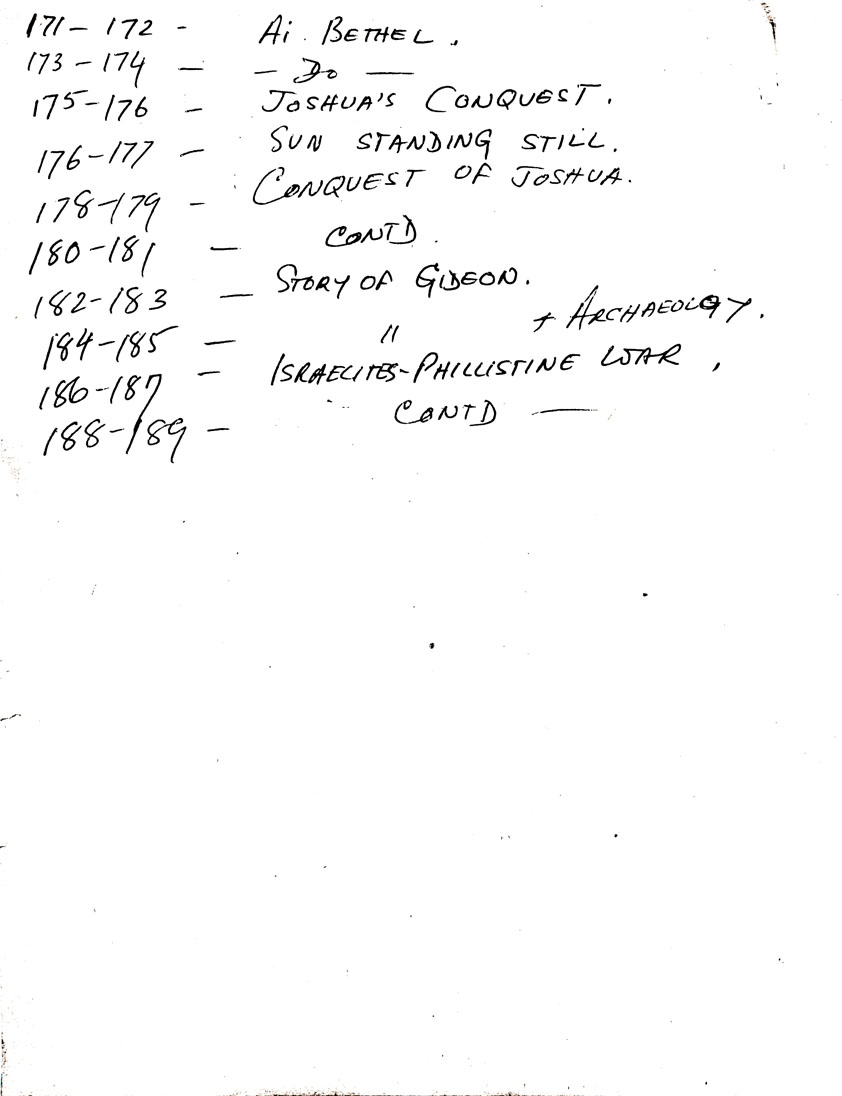 171- 172 - Ai. BETHEL.
173 - 174 — — Do —
175-176 - JOSHUA'S CONQUEST.
176-177 — SUN STANDING STILL.
178-179 - CONQUEST OF JOSHUA.
180-181 — CONTD.
182-183 — STORY OF GIDEON.
184-185 — " + ARCHAEOLOGY.
186-187 — ISRAELITES-PHILLISTINE WAR,
188-189 - CONTD —